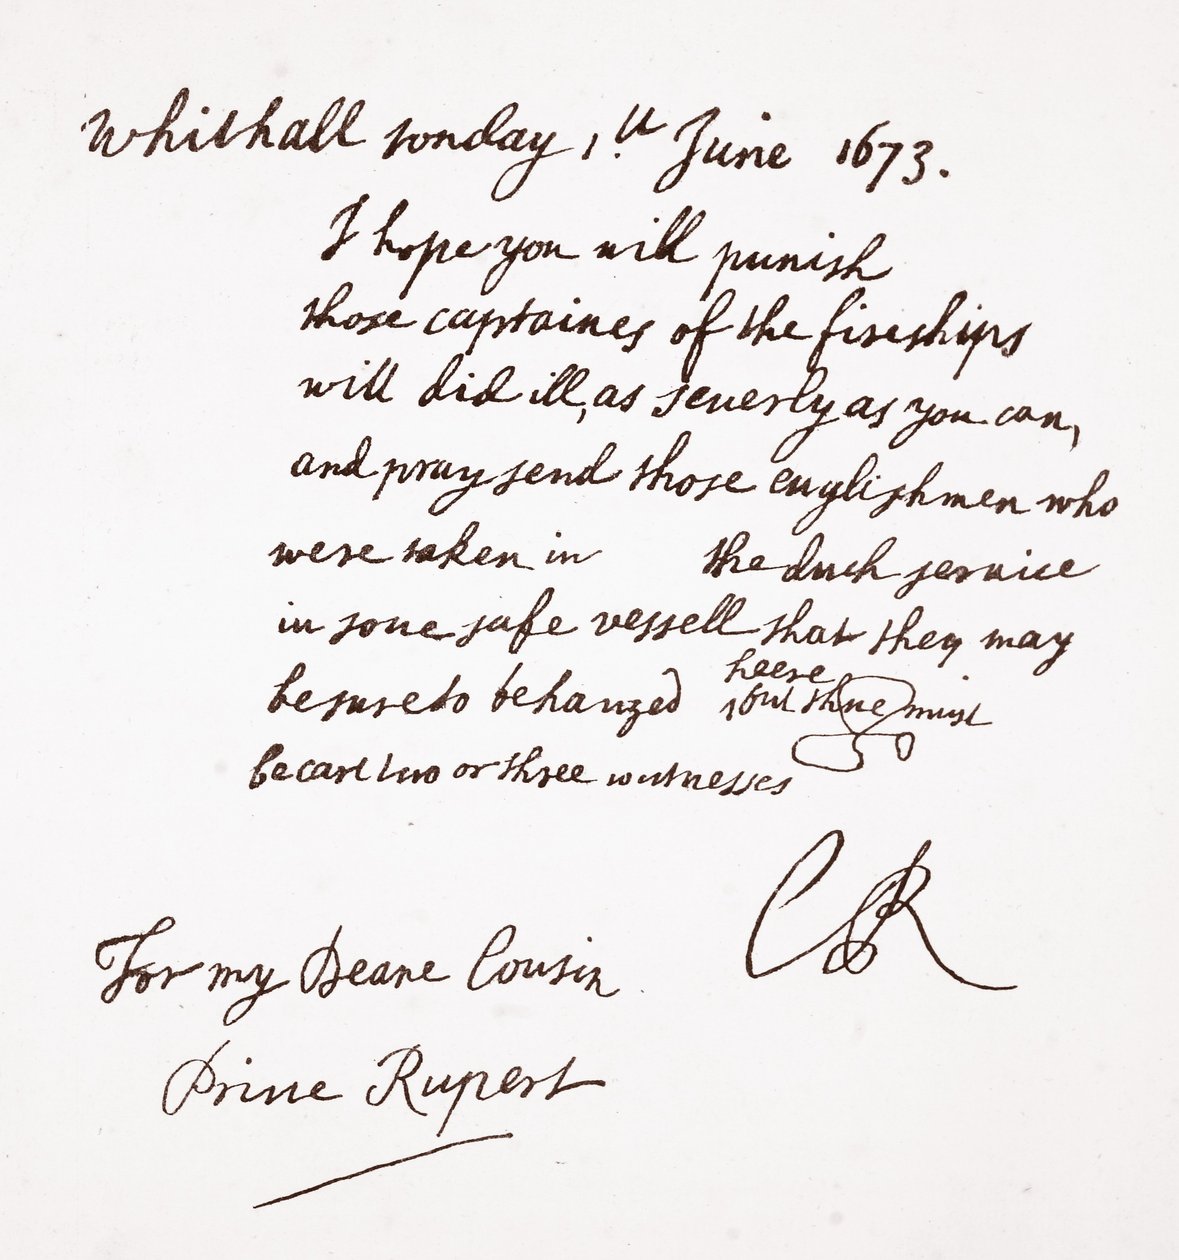 Whithall sonday 1.st June 1673.
I hope you will punish
those captaines of the fireships
will did ill, as seuerly as you can,
and pray send those englishmen who
were taken in the duch seruice
in some safe vessell that they may
heere
be sure to be hanged but there must
be care two or three witnesses
CR
For my Deare Cousin
Prince Rupert